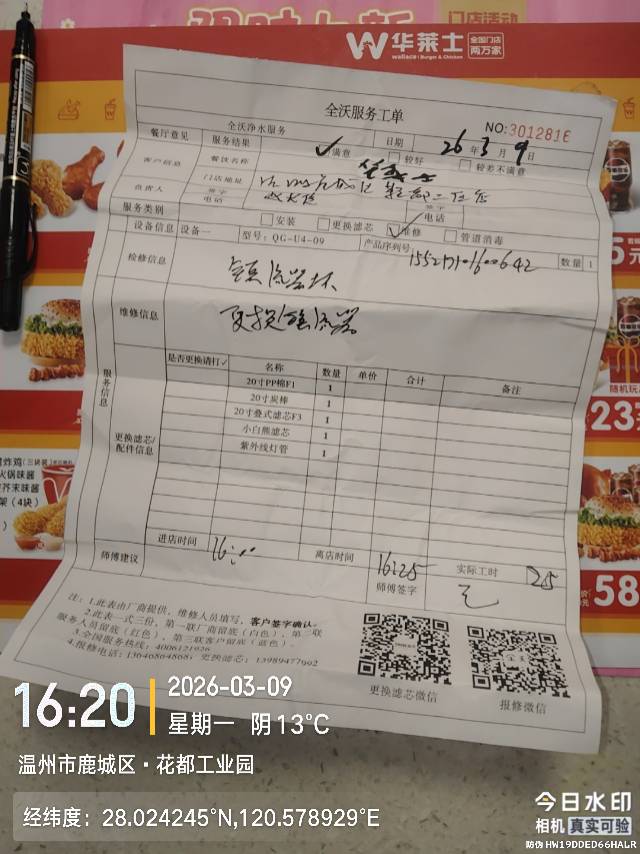 门店活动
华莱士
wallace | Burger & Chicken
全国门店
两万家
全沃服务工单
NO:3012816
全沃净水服务
日期 26年3月9日
餐厅意见 服务结果 ✓满意 较好 较差不满意
客户信息 餐饮名称 华莱士
门店地址
负责人 签字
电话 电话
服务类别 安装 更换滤芯 ✓维修 管道消毒
设备信息 设备一 型号：QG-U4-09 产品序列号 数量 1
检修信息
维修信息
服务信息
更换滤芯/配件信息
是否更换请打✓ 名称 数量 单价 合计 备注
20寸PP棉F1 1
20寸炭棒 1
20寸叠式滤芯F3 1
小白熊滤芯 1
紫外线灯管 1
进店时间 16:00 离店时间 16:25 实际工时 25
师傅建议 师傅签字
注：1.此表由厂商提供，维修人员填写，客户签字确认。
2.此表一式三份，第一联厂商留底（白色），第二联
服务人员留底（红色），第三联客户留底（蓝色）。
3.全国服务热线：4006121926
4.报修电话：13646864868；更换滤芯：13989477992
更换滤芯微信
报修微信
5元
23
58
16:20
2026-03-09
星期一 阴 13°C
温州市鹿城区·花都工业园
经纬度：28.024245°N,120.578929°E
今日水印
相机 真实可验
防伪 HW19DDED66HALR